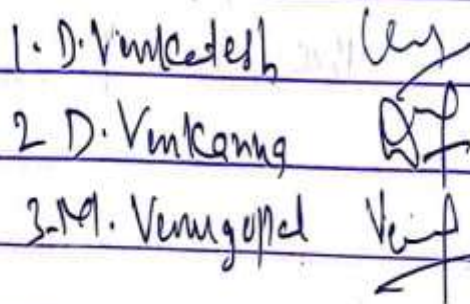 1. D. Venkatesh
2 D. Venkanna
3. M. Venugopal